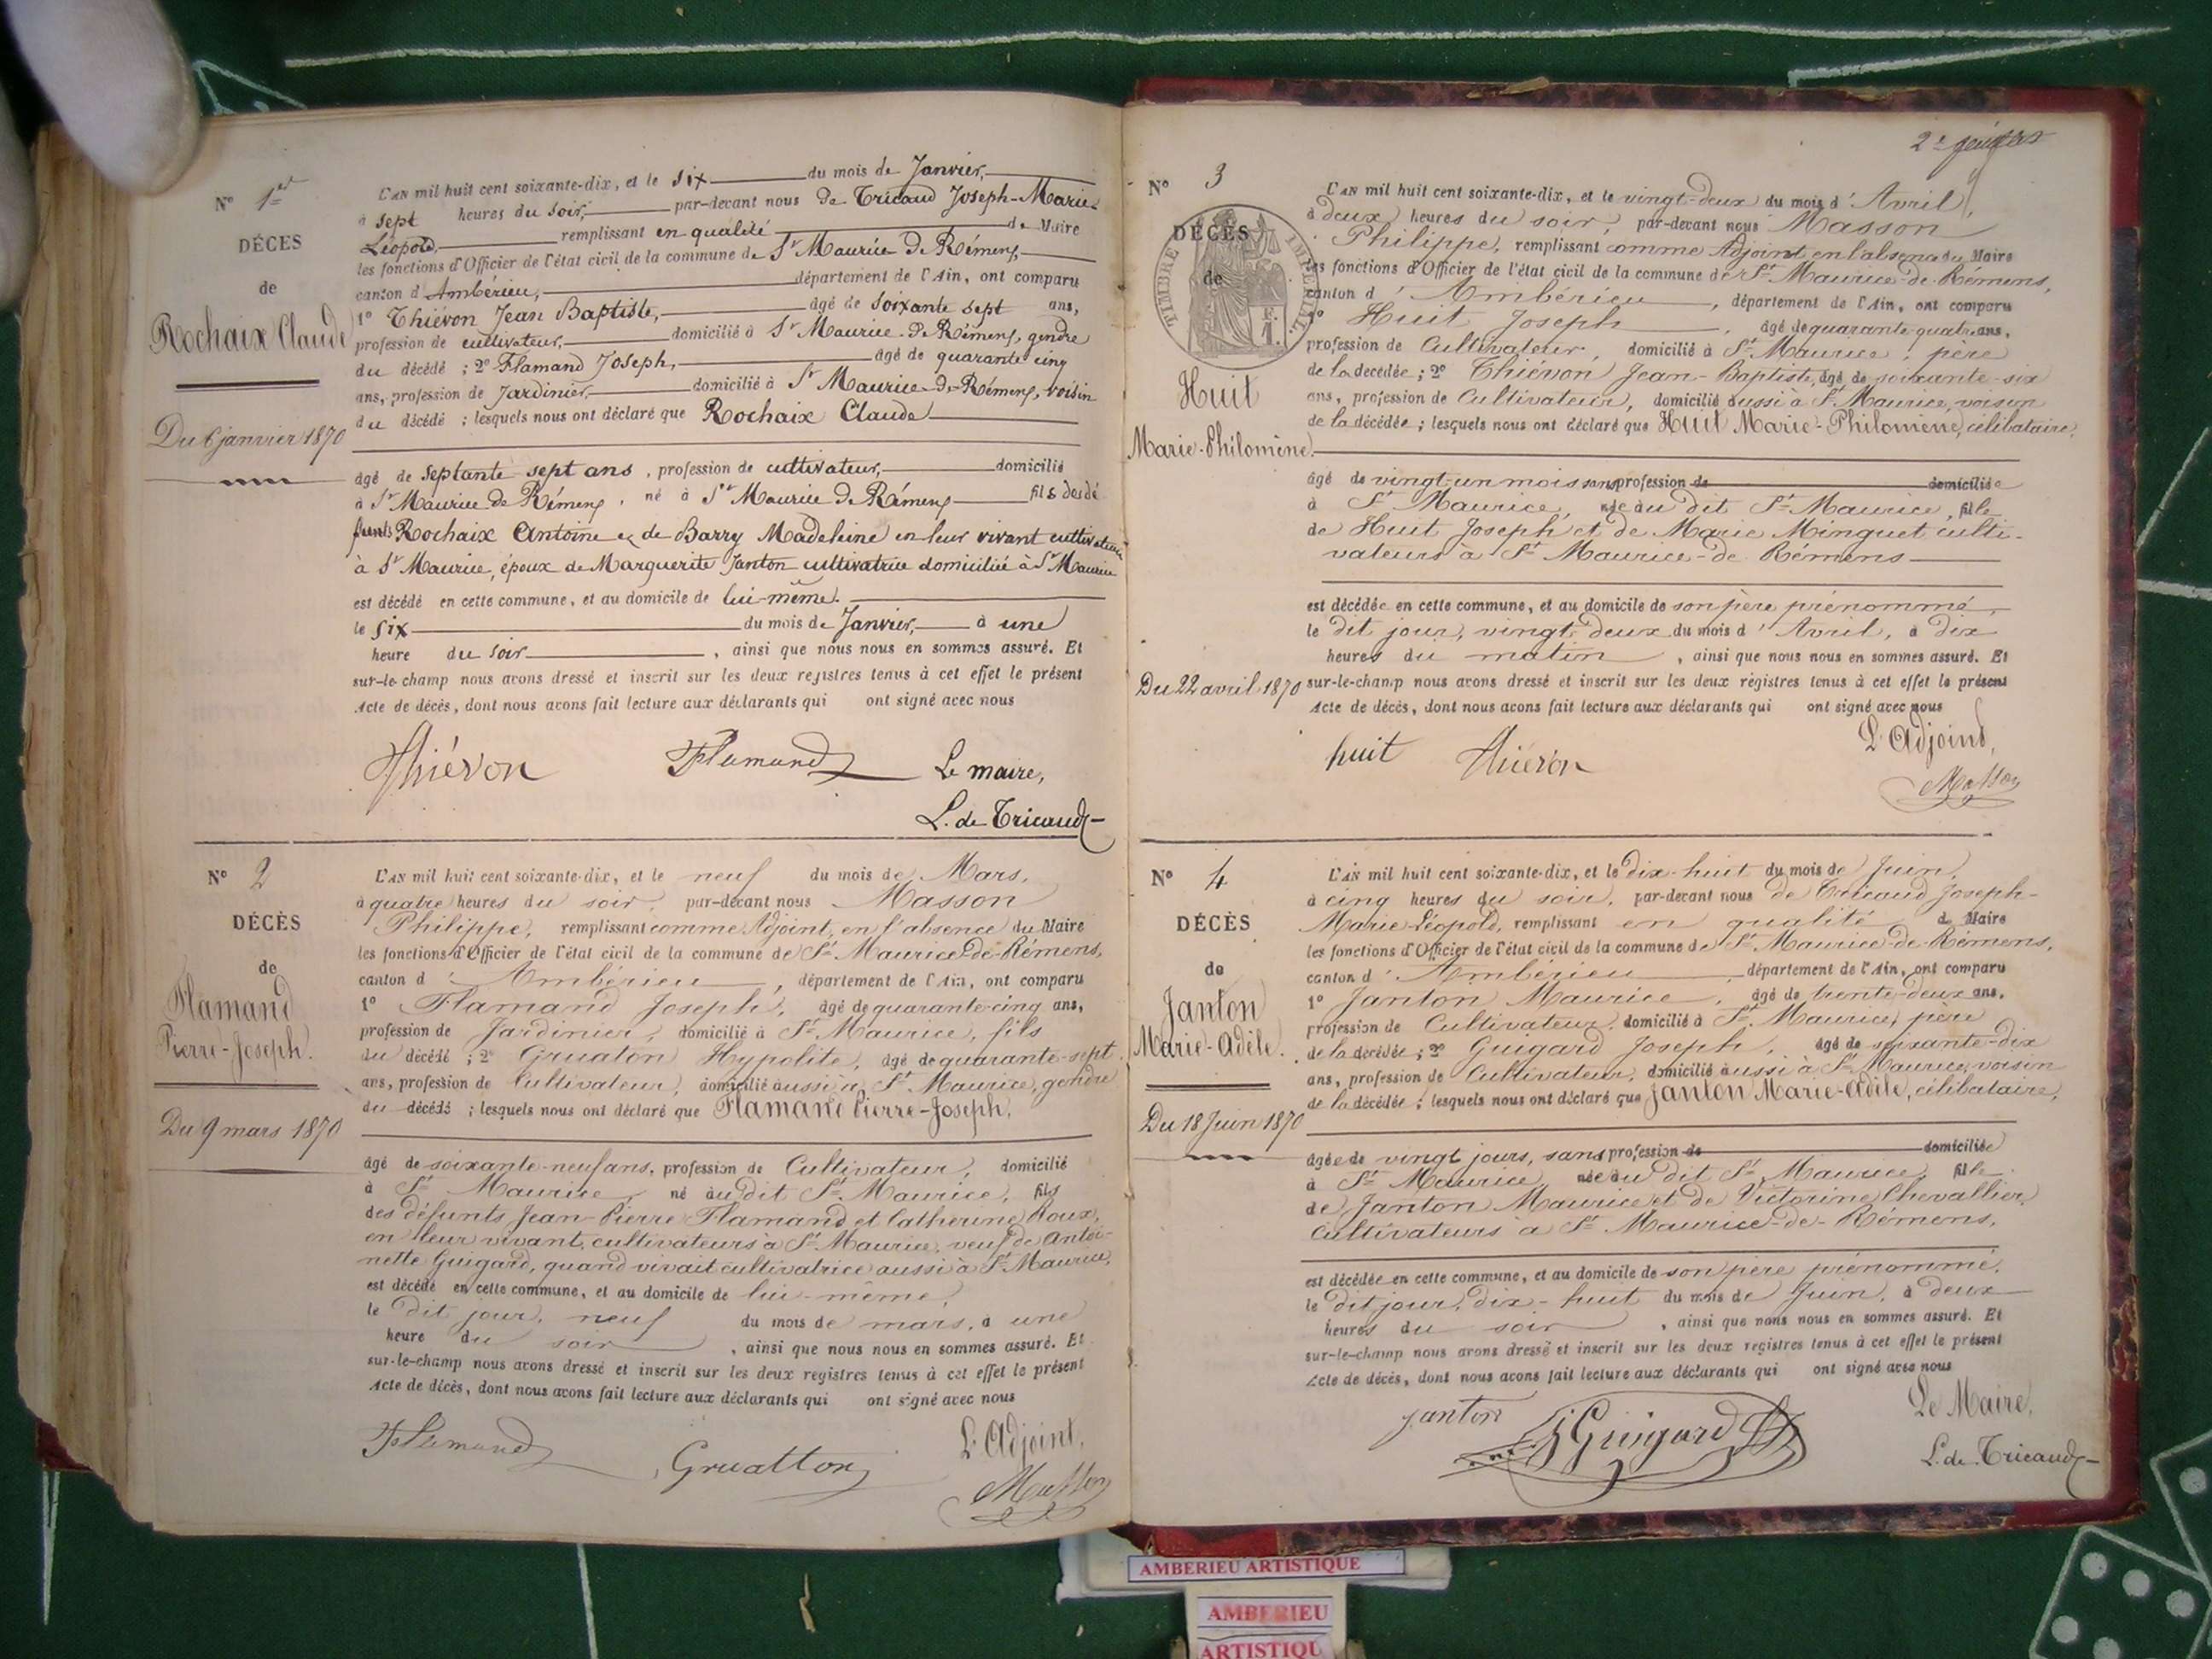 N° 1er
DÉCES
de
Rochaix Claude
Du 6 janvier 1870
L'AN mil huit cent soixante-dix, et le six du mois de Janvier,
à sept heures du soir, par-devant nous De Tricaud Joseph-Marie-
Léopold, remplissant en qualité de Maire
les fonctions d'Officier de l'état civil de la commune de St Maurice De Rémens,
canton d'Ambérieu, département de l'Ain, ont comparu
1° Thiévon Jean Baptiste, âgé de soixante sept ans,
profession de cultivateur, domicilié à St Maurice-De-Rémens, gendre
du décédé ; 2° Flamand Joseph, âgé de quarante cinq
ans, profession de Jardinier, domicilié à St Maurice-De-Rémens, voisin
du décédé ; lesquels nous ont déclaré que Rochaix Claude
âgé de septante sept ans, profession de cultivateur, domicilié
à St Maurice de Rémens, né à St Maurice De Rémens fils des dé
funts Rochaix Antoine et de Barry Madeleine en leur vivant cultivateurs
à St Maurice, époux de Marguerite Janton cultivatrice domiciliée à St Maurice
est décédé en cette commune, et au domicile de lui-même.
le six du mois de Janvier, à une
heure du soir, ainsi que nous nous en sommes assuré. Et
sur-le-champ nous avons dressé et inscrit sur les deux registres tenus à cet effet le présent
Acte de décès, dont nous avons fait lecture aux déclarants qui ont signé avec nous
Thiévon Flamand Le maire,
L. de Tricaud
N° 2
DÉCÈS
de
Flamand
Pierre-Joseph.
Du 9 mars 1870
L'AN mil huit cent soixante-dix, et le neuf du mois de Mars,
à quatre heures du soir, par-devant nous Masson
Philippe, remplissant comme Adjoint, en l'absence du Maire
les fonctions d'Officier de l'état civil de la commune de St Maurice-de-Rémens,
canton d'Ambérieu, département de l'Ain, ont comparu
1° Flamand Joseph, âgé de quarante-cinq ans,
profession de Jardinier, domicilié à St Maurice, fils
du décédé ; 2° Gruaton Hypolite, âgé de quarante-sept
ans, profession de Cultivateur, domicilié aussi à St Maurice, gendre
du décédé ; lesquels nous ont déclaré que Flamand Pierre-Joseph,
âgé de soixante-neuf ans, profession de Cultivateur, domicilié
à St Maurice, né au dit St Maurice, fils
des défunts Jean-Pierre Flamand et Catherine Roux,
en leur vivant cultivateurs à St Maurice, veuf de Antoi-
nette Guigard, quand vivait cultivatrice aussi à St Maurice,
est décédé en cette commune, et au domicile de lui-même,
le dit jour, neuf du mois de mars, à une
heure du soir, ainsi que nous nous en sommes assuré. Et
sur-le-champ nous avons dressé et inscrit sur les deux registres tenus à cet effet le présent
Acte de décès, dont nous avons fait lecture aux déclarants qui ont signé avec nous
Flamand Gruatton L'Adjoint,
Masson
N° 3
DÉCÈS
de
TIMBRE IMPÉRIAL
Huit
Marie-Philomène.
Du 22 avril 1870
L'AN mil huit cent soixante-dix, et le vingt-deux du mois d'Avril,
à deux heures du soir, par-devant nous Masson
Philippe, remplissant comme Adjoint en l'absence du Maire
les fonctions d'Officier de l'état civil de la commune de St Maurice-de-Rémens,
canton d'Ambérieu, département de l'Ain, ont comparu
1° Huit Joseph, âgé de quarante-quatre ans,
profession de Cultivateur, domicilié à St Maurice, père
de la décédée ; 2° Thiévon Jean-Baptiste, âgé de soixante-six
ans, profession de Cultivateur, domicilié aussi à St Maurice, voisin
de la décédée ; lesquels nous ont déclaré que Huit Marie-Philomène, célibataire,
âgé de vingt-un mois sans profession de domiciliée
à St Maurice, née au dit St Maurice, fille
de Huit Joseph et de Marie Minguet culti-
vateurs à St Maurice-de Rémens
est décédée en cette commune, et au domicile de son père prénommé,
le dit jour, vingt-deux du mois d'Avril, à dix
heures du matin, ainsi que nous nous en sommes assuré. Et
sur-le-champ nous avons dressé et inscrit sur les deux registres tenus à cet effet le présent
Acte de décès, dont nous avons fait lecture aux déclarants qui ont signé avec nous
huit Thiévon L'Adjoint,
Masson
N° 4
DÉCÈS
de
Janton
Marie-Adèle.
Du 18 Juin 1870
L'AN mil huit cent soixante-dix, et le dix-huit du mois de Juin,
à cinq heures du soir, par-devant nous de Tricaud Joseph-
Marie-Léopold, remplissant en qualité de Maire
les fonctions d'Officier de l'état civil de la commune de St Maurice-de-Rémens,
canton d'Ambérieu, département de l'Ain, ont comparu
1° Janton Maurice, âgé de trente-deux ans,
profession de Cultivateur, domicilié à St Maurice, père
de la décédée ; 2° Guigard Joseph, âgé de soixante-dix
ans, profession de Cultivateur, domicilié aussi à St Maurice, voisin
de la décédée ; lesquels nous ont déclaré que Janton Marie-Adèle, célibataire,
âgée de vingt jours, sans profession de domiciliée
à St Maurice, née au dit St Maurice, fille
de Janton Maurice et de Victorine Chevallier,
Cultivateurs à St Maurice-de-Rémens,
est décédée en cette commune, et au domicile de son père prénommé,
le dit jour, dix-huit du mois de Juin, à deux
heures du soir, ainsi que nous nous en sommes assuré. Et
sur-le-champ nous avons dressé et inscrit sur les deux registres tenus à cet effet le présent
Acte de décès, dont nous avons fait lecture aux déclarants qui ont signé avec nous
Janton J Guigard Le Maire,
L. de Tricaud
AMBERIEU ARTISTIQUE
AMBERIEU
ARTISTIQU